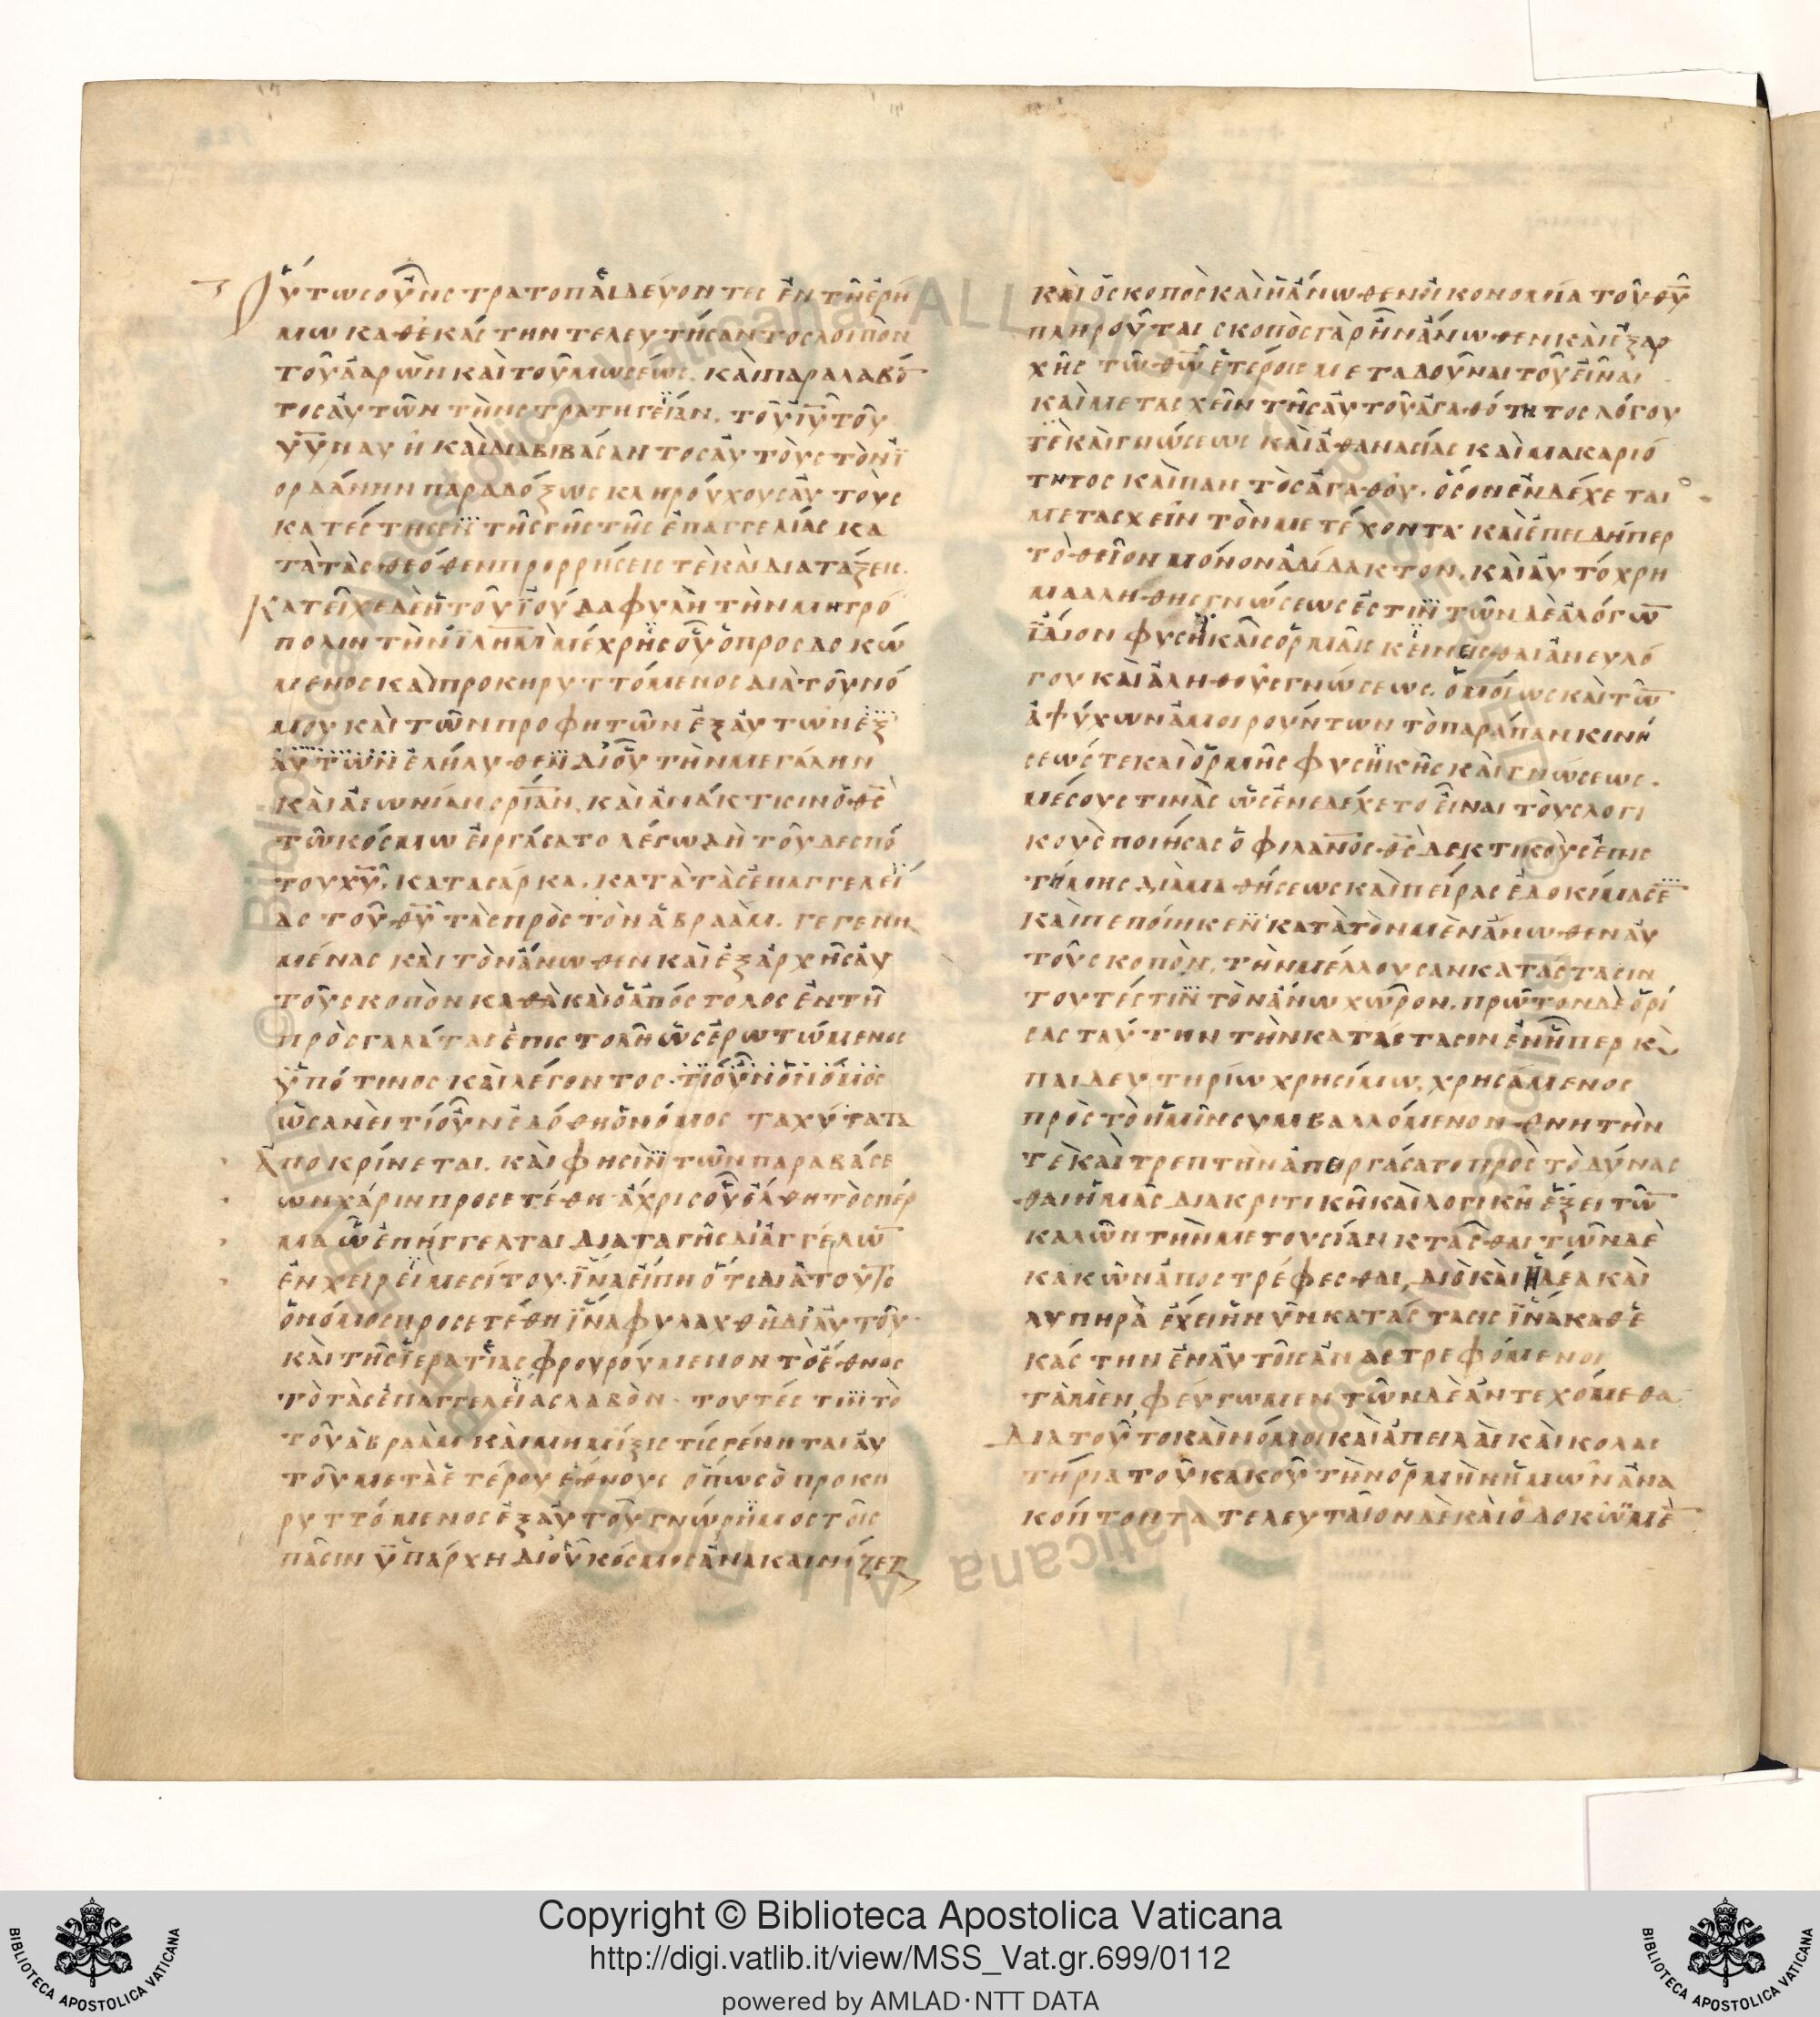 Οὕτως οὖν στρατοπαιδεύοντες ἐν τῇ ἐρή
μω καθεκάστην τελευτήσαντος λοιπὸν
τοῦ ἀαρὼν καὶ τοῦ μωσέως. καὶ παραλαβό
τος αὐτῶν τὴν στρατηγείαν. τοῦ ἰῦ τοῦ
ῡῡ ναυῆ καὶ διαβιβάσαντος αὐτοὺς τὸν ϊ
ορδάνην παραδόξως κληρούχους αὐτοὺς
κατέστησεν τῆς γῆς τῆς ἐπαγγελίας κα
τὰ τὰς θεόθεν προρρήσεις τὲ καὶ διατάξεις.
Κατεῖχε δὲ ἡ τοῦ ϊούδα φυλὴ τὴν μητρό
πολιν τὴν ϊλημ μέχρης οὗ ὁ προσδοκώ
μενος καὶ προκηρυττόμενος διὰ τοῦ νό
μου καὶ τῶν προφητῶν ἐξ αὐτῶν ἐξ
αὐτῶν ἐλήλυθεν δι' οὗ τὴν μεγάλην
καὶ αἰωνίαν σρίαν. καὶ ἀνάκτισιν ὁ θς
τῶ κόσμω εἰργάσατο λέγω δὴ τοῦ δεσπό
του χῦ, κατασάρκα. κατὰ τὰς ἐπαγγελεί
ας τοῦ θῦ τὰς πρὸς τὸν ἀβραὰμ. γεγενη
μένας καὶ τὸν ἄνωθεν καὶ ἐξ ἀρχῆς αὐ
τοῦ σκοπὸν καθὰ καὶ ὁ ἀπόστολος ἐν τῆ
πρὸς γαλάτας ἐπιστολῆ ὡς ἐρωτώμενος
ὑπό τινος καὶ λέγοντος. τί οὖν ὁ νόμος
ὡσανεὶ τί οὖν ἐδόθη ὁ νόμος ταχύτατα
ἀποκρίνεται. καὶ φησὶν τῶν παραβάσε
ων χάριν προσετέθη ἄχρις οὗ ἔλθη τὸ σπέρ
μα ὧ ἐπήγγελται διαταγῆς δι' ἀγγέλω
ἐν χειρεὶ μεσίτου. ἵνα εἴπη ὅτι διὰ τοῦτο
ὁ νόμος προσετέθη ἵνα φυλαχθῆ δι' αὐτοῦ
καὶ τῆς ϊερατίας φρουρούμενον τὸ ἔθνος
τὸ τὰς ἐπαγγελείας λαβὸν. τουτέστιν τὸ
τοῦ ἀβραὰμ καὶ μὴ μίξις τίς γένηται αὐ
τοῦ μετὰ ἑτέρου ἔθνους ὅπως ὁ προκη
ρυττόμενος ἐξ αὐτοῦ γνώρημος τοῖς
πᾶσιν ὑπάρχη δι' οὗ κόσμος ἀνακαινίζετ
καὶ ὁ σκοπὸς καὶ ἡ ἄνωθεν οἰκονομία τοῦ θῦ
πληροῦται σκοπὸς γὰρ ἦν ἄνωθεν καὶ ἐξ αρ
χῆς τῶ θω ἑτέροις μεταδοῦναι τοῦ εἶναι
καὶ μετασχεῖν τῆς αὐτοῦ ἀγαθότητος λόγου
τὲ καὶ γνώσεως καὶ ἀθανασίας καὶ μακαριό
τητος καὶ παντὸς ἀγαθοῦ. ὅσον ἐνδέχεται
μετασχεῖν τὸν μετέχοντα καὶ ἐπειδήπερ
τὸ θεῖον μόνον ἀδίδακτον. καὶ αὐτόχρη
μα ἀληθης γνώσεως ἐστιν τῶν δὲ ἀλόγω
ἴδιον φυσηκαῖς ὁρμαῖς κεινεῖσθαι ἄνευ λό
γου καὶ ἀληθοῦς γνώσεως. ὁμοίως καὶ τῶ
ἀψύχων ἀμοιρούντων τὸ παράπαν κινή
σεως τε καὶ ὁρμῆς φυσηκῆς καὶ γνώσεως.
μέσους τινὰς ὡς ἐνεδέχετο εἶναι τοὺς λογι
κοὺς ποιήσας ὁ φιλανος θς δεκτικοὺς ἐπις
τήμης διὰ μαθήσεως καὶ πείρας ἐδοκίμασε
καὶ πεποίηκεν κατὰ τὸν μὲν ἄνωθεν αὐ
τοῦ σκοπὸν, τὴν μέλλουσαν κατάστασιν
τουτέστιν τὸν ἄνω χῶρον. πρῶτον δὲ ὁρί
σας ταύτην τὴν κατάστασιν ἐν ἧπερ κὲ
παιδευτηρίω χρησίμω. χρησάμενος
πρὸς τὸ ἡμῖν συμβαλλόμενον θνητὴν
τὲ καὶ τρεπτὴν ἀπειργάσατο πρὸς τὸ δύνας
θαι ἡμᾶς διακριτικῆ καὶ λογικῆ ἕξει τῶ
καλῶν τὴν μετουσίαν κτᾶσθαι τῶν δὲ
κακῶν ἀποστρέφεσθαι, διὸ καὶ ἡδέα καὶ
λυπηρὰ ἔχει ἡ νῦν κατάστασις ἵνα καθε
κάστην ἐν αὐτοῖς ἀναστρεφόμενοι
τὰ μὲν φεύγωμεν τῶν δὲ ἀντεχόμεθα
Διατοῦτο καὶ νόμοι καὶ ἀπειλαὶ καὶ κολας
τήρια τοῦ κακοῦ τὴν ὁρμὴν ἡμῶν ἀνα
κόπτοντα τελευταῖον δὲ καὶ ὁ δοκῶ μὲ
Copyright © Biblioteca Apostolica Vaticana
http://digi.vatlib.it/view/MSS_Vat.gr.699/0112
powered by AMLAD·NTT DATA
BIBLIOTECA APOSTOLICA VATICANA
BIBLIOTECA APOSTOLICA VATICANA